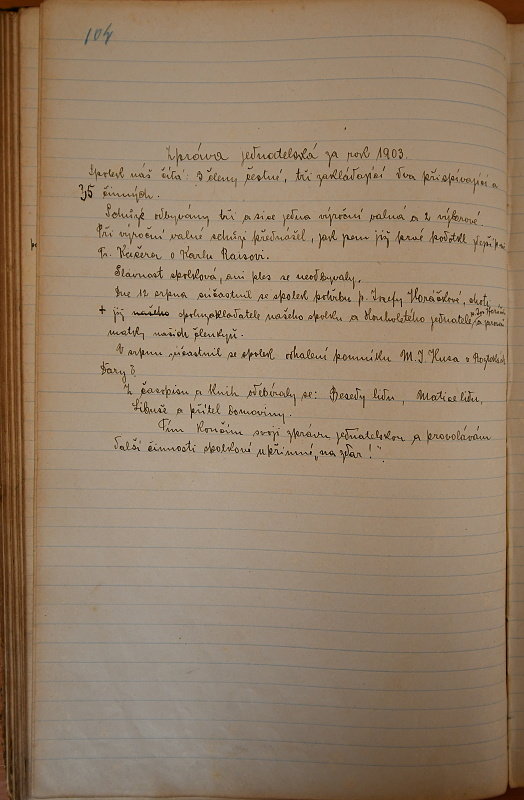 104
Zpráva jednatelská za rok 1903.
Spolek náš čítá: 3 členy čestné, tři zakládající dva přispívající a
35 činných.
Schůze odbývány tři a sice jedna výroční valná a 2 výborové
Při výroční valné schůzi přednášel, jak jsem již prvé podotkl
Fr. Kučera o Karlu Raisovi.
Slavnost spolková, ani ples se neodbývaly.
Dne 12 srpna súčastnil se spolek pohřbu p. Josefy Horáčkové, choti
+ již našeho spoluzakladatele našeho spolku a jednatele
matky našich členkyň.
V srpnu súčastnil se spolek odhalení pomníku M. J. Husa v
Dary
Z časopisů a knih odebíraly se: Besedy lidu, Matice lidu,
Libuše a přítel domoviny.
Tím končím svoji zprávu jednatelskou a provolávám
další činnosti spolkové upřímné „na zdar!".